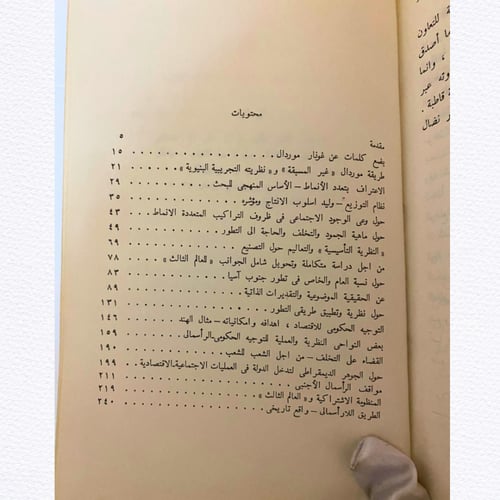 ة للتعاون
ما أصدق
، وانما
وته عبر
ة قاطبة .
ر نضال
محتويات
مقدمة ٥
بضع كلمات عن غونار موردال . . . . . . . . . . ١٥
طريقة موردال «غير المسبقة» و«نظريته التجريبية البنيوية» ٢١
الاعتراف بتعدد الأنماط – الأساس المنهجي للبحث . . . . ٢٩
نظام التوزيع – وليد اسلوب الانتاج ومؤشره . . . . . ٣٥
حول وعي الوجود الاجتماعي في ظروف التراكيب المتعددة الانماط . ٤٣
حول ماهية الجمود والتخلف والحاجة الى التطور . . . . ٤٩
«النظرية التأسيسية» والتعاليم حول التصنيع . . . . . ٦٩
من اجل دراسة متكاملة وتحويل شامل الجوانب «للعالم الثالث» . ٧٨
حول نسبة العام والخاص في تطور جنوب آسيا . . . . . ٨٣
عن الحقيقية الموضوعية والتقديرات الذاتية . . . . . . ٨٩
حول نظرية وتطبيق طريقي التطور . . . . . . . . ١٣١
التوجيه الحكومي للاقتصاد ، اهدافه وامكانياته – مثال الهند . . ١٤٦
بعض النواحي النظرية والعملية للتوجيه الحكومي-الرأسمالي . . ١٥٩
القضاء على التخلف – من اجل الشعب للشعب . . . . . ١٩٠
حول الجوهر الديمقراطي لتدخل الدولة في العمليات الاجتماعية-الاقتصادية . ١٩٩
مواقف الرأسمال الأجنبي . . . . . . . . . . ٢١١
المنظومة الاشتراكية و«العالم الثالث» . . . . . . . ٢١٩
الطريق اللارأسمالي – واقع تاريخي . . . . . . . . ٢٤٠